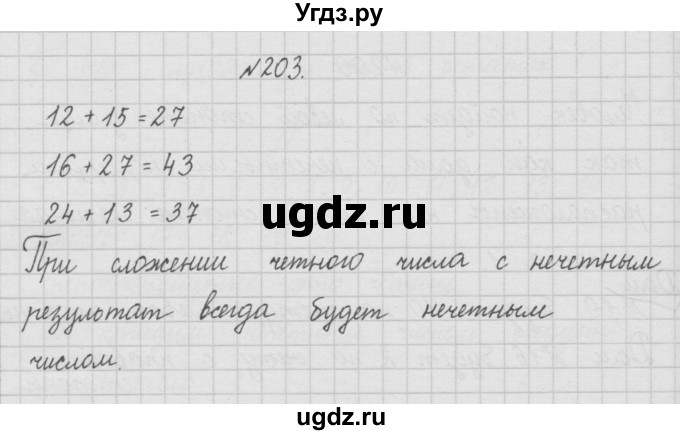 Угдз.ру
№203.
12 + 15 = 27
16 + 27 = 43
ugdz.ru
24 + 13 = 37
При сложении четного числа с нечетным
результат всегда будет нечетным
числом.
ugdz.ru